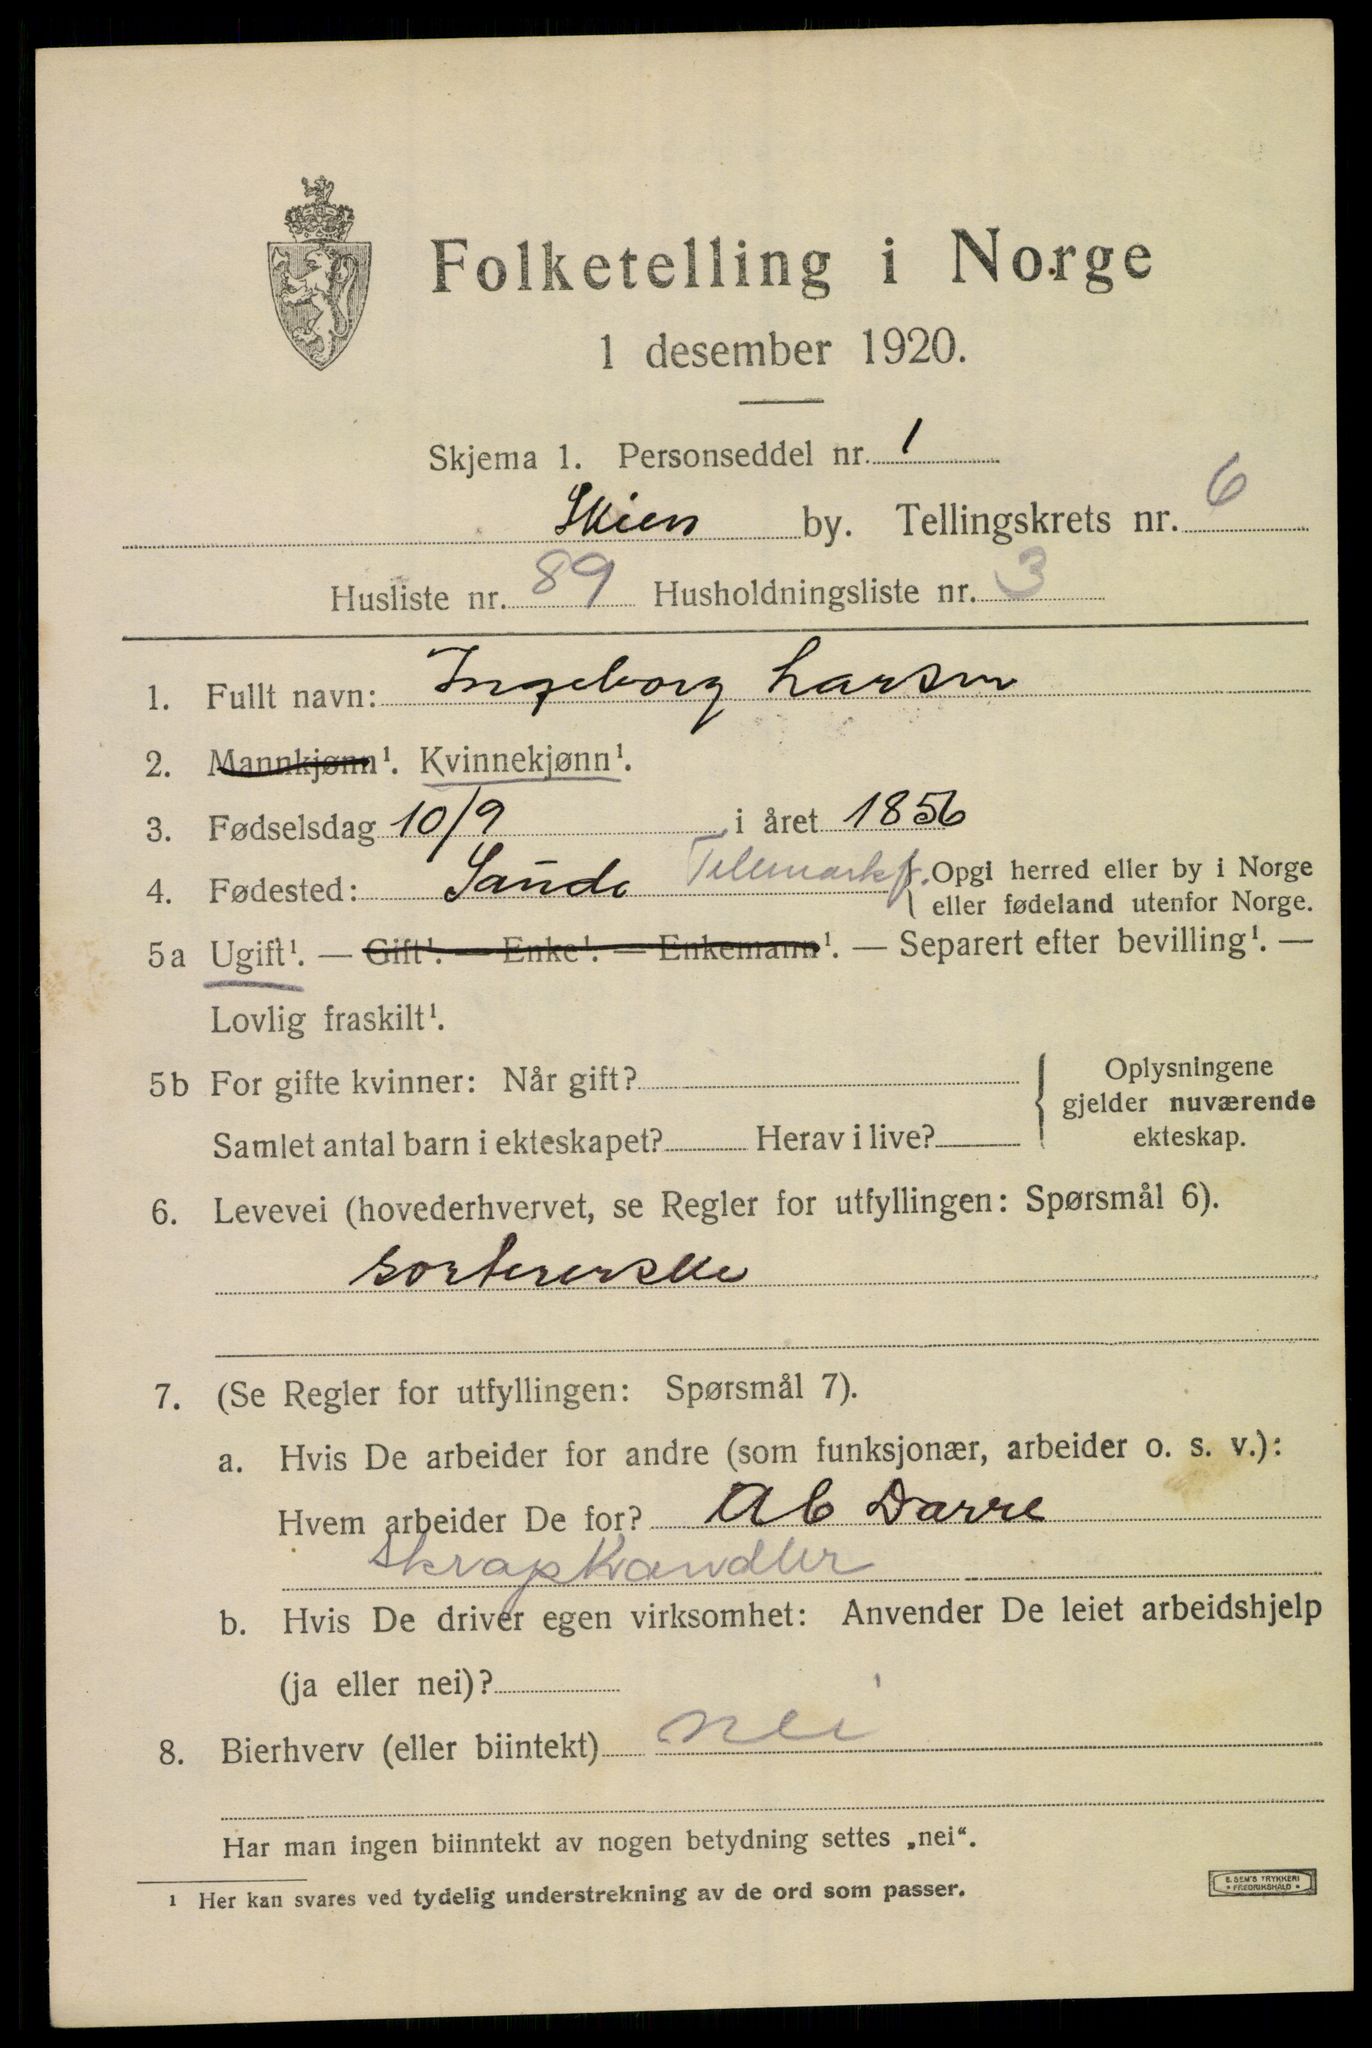 Folketelling i Norge
1 desember 1920.
Skjema 1. Personseddel nr. 1
Skien by. Tellingskrets nr. 6
Husliste nr. 89 Husholdningsliste nr. 3
1. Fullt navn: Ingeborg Larsen
2. Mannkjønn¹. Kvinnekjønn¹.
3. Fødselsdag 10/9 i året 1856
4. Fødested: Sande Telemark f. Opgi herred eller by i Norge
eller fødeland utenfor Norge.
5a Ugift¹. — Gift¹. — Enke¹. — Enkemann¹. — Separert efter bevilling¹. —
Lovlig fraskilt¹.
5b For gifte kvinner: Når gift? Oplysningene
gjelder nuværende
Samlet antal barn i ekteskapet? Herav i live? ekteskap.
6. Levevei (hovederhvervet, se Regler for utfyllingen: Spørsmål 6).
sortererske
7. (Se Regler for utfyllingen: Spørsmål 7).
a. Hvis De arbeider for andre (som funksjonær, arbeider o. s. v.):
Hvem arbeider De for? Ab Darre
Skraphandler
b. Hvis De driver egen virksomhet: Anvender De leiet arbeidshjelp
(ja eller nei)?
8. Bierhverv (eller biintekt) nei
Har man ingen biinntekt av nogen betydning settes „nei“.
¹ Her kan svares ved tydelig understrekning av de ord som passer.
E. SEM'S TRYKKERI
• FREDRIKSHALD •